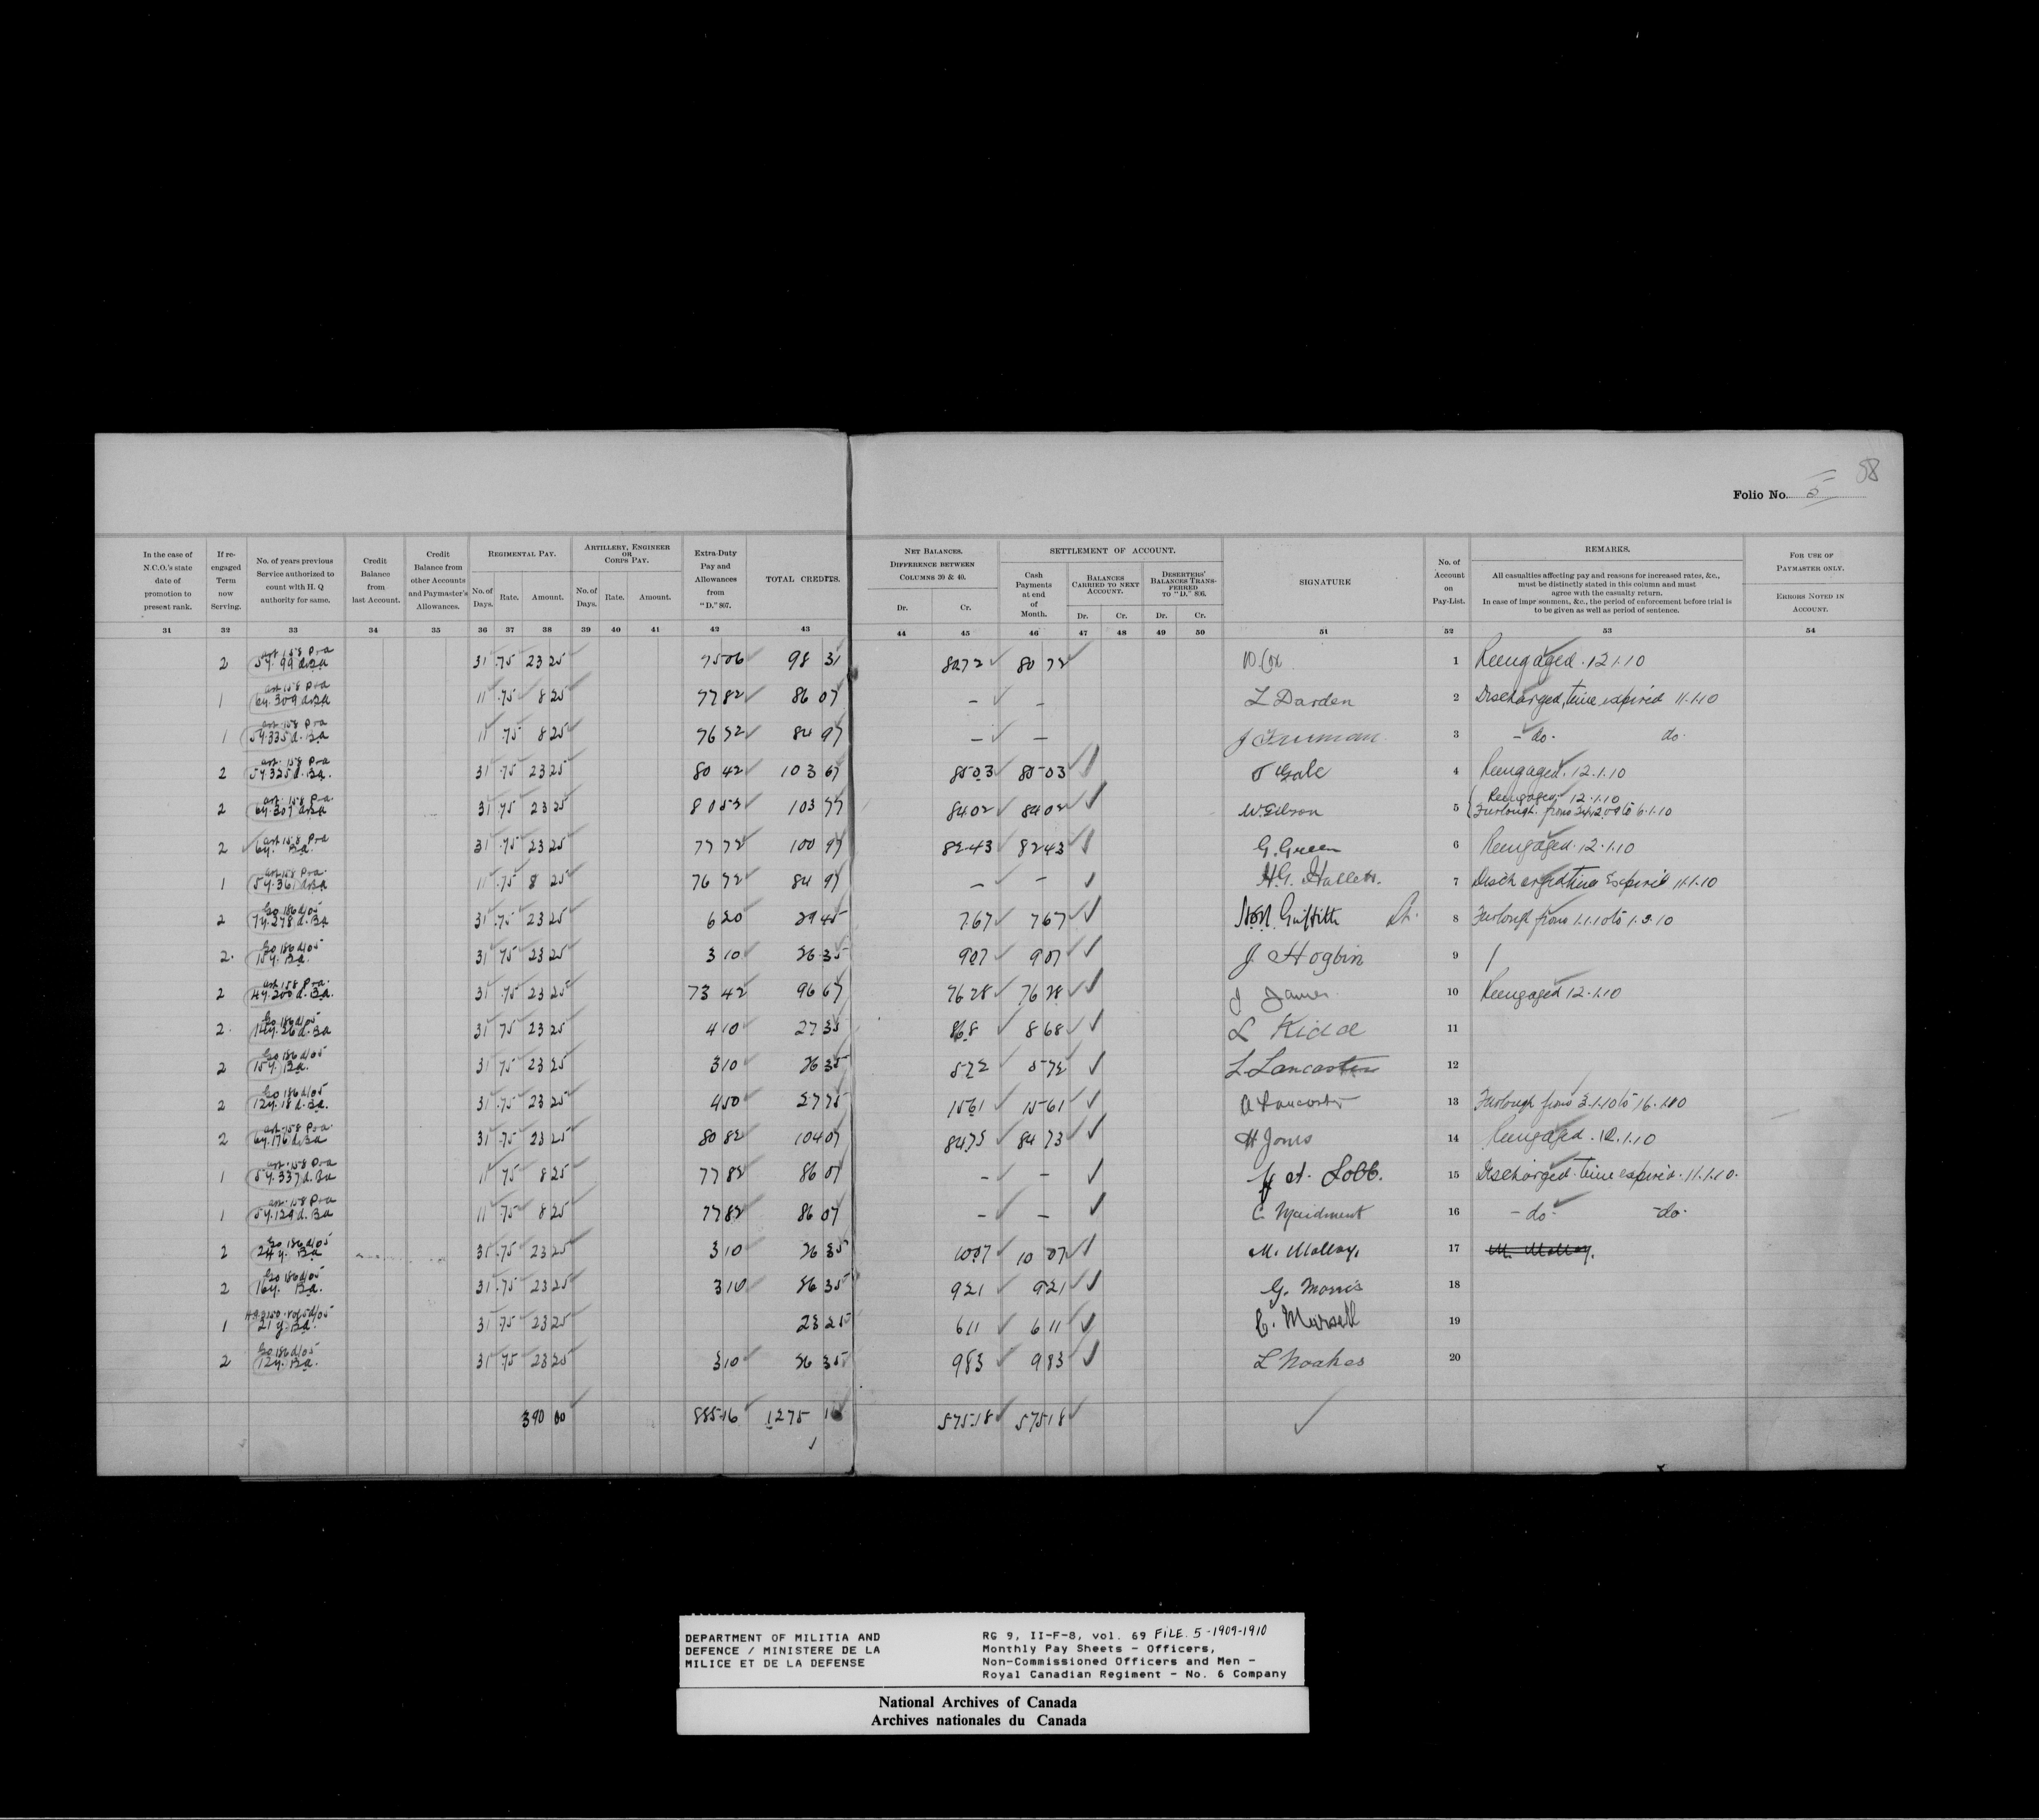 58
Folio No. 5
In the case of N.C.O.'s state date of promotion to present rank.
If re-engaged Term now Serving.
No. of years previous Service authorized to count with H. Q authority for same.
Credit Balance from last Account.
Credit Balance from other Accounts and Paymaster's Allowances.
REGIMENTAL PAY.
No. of Days. Rate. Amount.
ARTILLERY, ENGINEER OR CORPS PAY.
No. of Days. Rate. Amount.
Extra-Duty Pay and Allowances from "D." 807.
TOTAL CREDITS.
NET BALANCES. DIFFERENCE BETWEEN COLUMNS 30 & 40.
Dr. Cr.
SETTLEMENT OF ACCOUNT.
Cash Payments at end of Month.
BALANCES CARRIED TO NEXT ACCOUNT.
Dr. Cr.
DESERTERS' BALANCES TRANSFERRED TO "D." 806.
Dr. Cr.
SIGNATURE
No. of Account on Pay-List.
REMARKS.
All casualties affecting pay and reasons for increased rates, &c., must be distinctly stated in this column and must agree with the casualty return.
In case of impr sonment, &c., the period of enforcement before trial is to be given as well as period of sentence.
FOR USE OF PAYMASTER ONLY.
ERRORS NOTED IN ACCOUNT.
31 32 33 34 35 36 37 38 39 40 41 42 43 44 45 46 47 48 49 50 51 52 53 54
2 art 158 P&A 5y. 99 d. Ba 31 .75 23 25 75 06 98 31 80 72 80 72 W. Cox 1 Reengaged. 12.1.10
1 art 158 P&A 6y. 309 d. Ba 11 .75 8 25 77 82 86 07 - - L Darden 2 Discharged, time expired 11.1.10
1 art 158 P&A 5y. 335 d. Ba 11 .75 8 25 76 72 84 97 - - 3 - do. do.
2 art. 158 P&A 5y 325 d. Ba. 31 .75 23 25 80 42 103 67 85 03 85 03 T Gale 4 Reengaged. 12.1.10
2 art. 158 P&A 6y. 307 d. Ba 31 .75 23 25 80 52 103 77 84 02 84 02 W. Gilson 5 Reengaged. 12.1.10
Furlough. from 24.12.09 to 6.1.10
2 art 158 P&A 6y. Ba. 31 .75 23 25 77 72 100 97 82 43 82 43 G. Green 6 Reengaged. 12.1.10
1 art 158 P&A. 5y. 361 d. Ba 11 .75 8 25 76 72 84 97 - - H.G. Hallett. 7 Discharged time Expired 11.1.10
2 Go 186 d/05 7y. 278 d. Ba 31 .75 23 25 6 20 29 45 7 67 7 67 Griffith 8 Furlough from 1.1.10 to 1.3.10
2. Go 186 d/05 15y. Ba. 31 .75 23 25 3 10 26 35 9 07 9 07 J Hogbin 9
2 art 158 P&A. 4y. 200 d. Ba. 31 .75 23 25 73 42 96 67 76 28 76 28 J James 10 Reengaged 12.1.10
2. Go 186 d/05 14y. 26 d. Ba 31 75 23 25 4 10 27 35 8 68 8 68 L Kidd 11
2 Go 186 d/05 15y. Ba. 31 75 23 25 3 10 26 35 5 72 5 72 L. Lancaster 12
2 Go 186 d/05 12y. 18 d. Ba. 31 .75 23 25 4 50 27 75 15 61 15 61 A Lancaster 13 Furlough from 3.1.10 to 16.1.10
2 art. 158 P&A. 6y. 176 d. Ba 31 .75 23 25 80 82 104 07 84 73 84 73 H Jones 14 Reengaged. 12.1.10
1 art. 158 P&A 5y. 337 d. Ba 11 75 8 25 77 82 86 07 - - Lobb. 15 Discharged. time expired. 11.1.10.
1 art. 158 P&A 5y. 129 d. Ba 11 .75 8 25 77 82 86 07 - - C. Maidment 16 - do. - do.
2 Go 186 d/05 24y. Ba 31 .75 23 25 3 10 26 35 10 07 10 07 M. Malloy. 17 M. Malloy.
2 Go 186 d/05 16y. Ba. 31 .75 23 25 3 10 26 35 9 21 9 21 G. Morris 18
1 21 y. Ba. 31 .75 23 25 23 25 6 11 6 11 C. Mursell 19
2 Go 186 d/05 12y. Ba. 31 .75 23 25 3 10 26 35 9 83 9 83 L Noakes 20
390 00 885 16 1275 16 575.18 575 18
DEPARTMENT OF MILITIA AND
DEFENCE / MINISTERE DE LA
MILICE ET DE LA DEFENSE
RG 9, II-F-8, vol. 69 FILE. 5 -1909-1910
Monthly Pay Sheets - Officers,
Non-Commissioned Officers and Men -
Royal Canadian Regiment - No. 6 Company
National Archives of Canada
Archives nationales du Canada